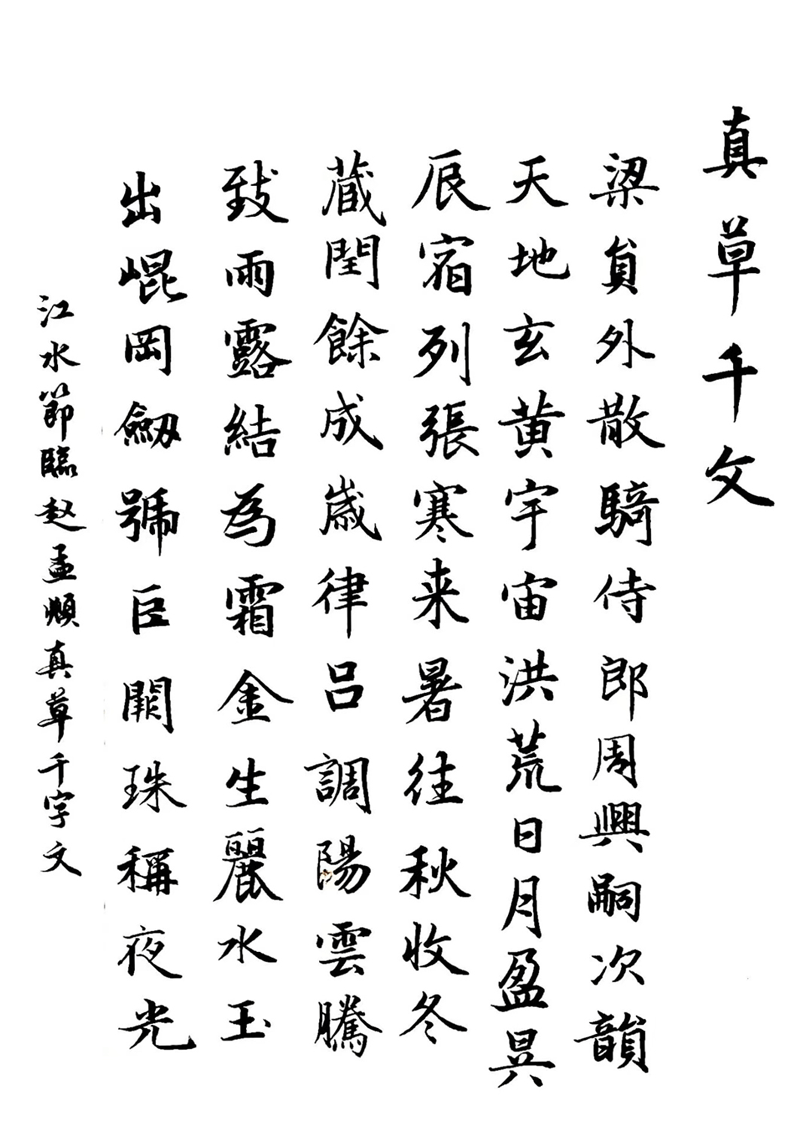 真草千文
梁員外散騎侍郎周興嗣次韻
天地玄黄宇宙洪荒日月盈昃
辰宿列張寒来暑往秋收冬
蔵閏餘成歲律吕調陽雲騰
致雨露結為霜金生麗水玉
出崐岡劔號巨闕珠稱夜光
江水節臨赵孟頫真草千字文